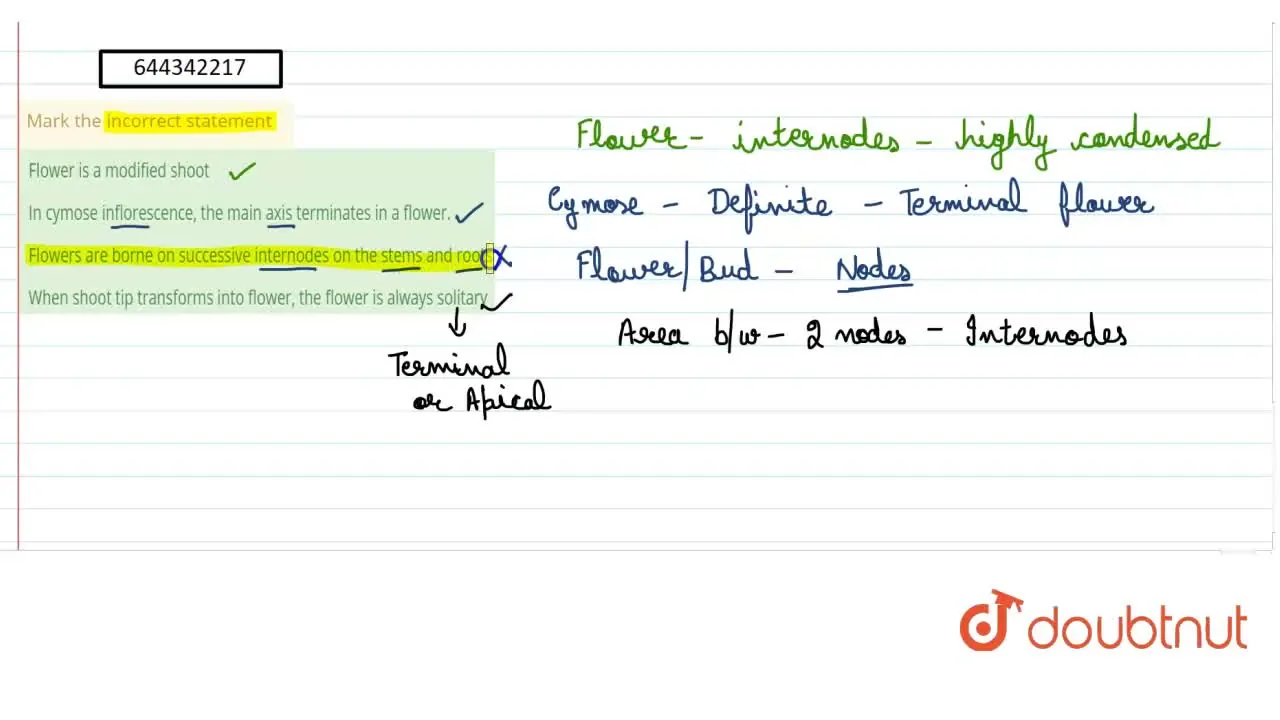 644342217
Mark the incorrect statement
Flower is a modified shoot
In cymose inflorescence, the main axis terminates in a flower.
Flowers are borne on successive internodes on the stems and root
When shoot tip transforms into flower, the flower is always solitary
Terminal
or Apical
Flower - internodes - highly condensed
Cymose - Definite - Terminal flower
Flower/Bud - Nodes
Area b/w - 2 nodes - Internodes
doubtnut